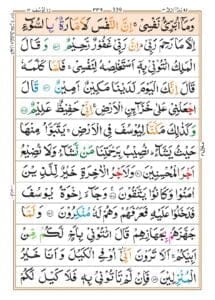 وَمَآ اُبَرِّئُ نَفْسِیْ ۚ اِنَّ النَّفْسَ لَاَمَّارَةٌۢ بِالسُّوْٓءِ
اِلَّا مَا رَحِمَ رَبِّیْ ؕ اِنَّ رَبِّیْ غَفُوْرٌ رَّحِیْمٌ ۝ وَقَالَ
الْمَلِكُ ائْتُوْنِیْ بِهٖۤ اَسْتَخْلِصْهُ لِنَفْسِیْ ۚ فَلَمَّا كَلَّمَهٗ
قَالَ اِنَّكَ الْیَوْمَ لَدَیْنَا مَكِیْنٌ اَمِیْنٌ ۝ قَالَ
اجْعَلْنِیْ عَلٰی خَزَآىِٕنِ الْاَرْضِ ۚ اِنِّیْ حَفِیْظٌ عَلِیْمٌ ۝
وَكَذٰلِكَ مَكَّنَّا لِیُوْسُفَ فِی الْاَرْضِ ۚ یَتَبَوَّاُ مِنْهَا
حَیْثُ یَشَآءُ ؕ نُصِیْبُ بِرَحْمَتِنَا مَنْ نَّشَآءُ وَلَا نُضِیْعُ
اَجْرَ الْمُحْسِنِیْنَ ۝ وَلَاَجْرُ الْاٰخِرَةِ خَیْرٌ لِّلَّذِیْنَ
اٰمَنُوْا وَكَانُوْا یَتَّقُوْنَ ۝ وَجَآءَ اِخْوَةُ یُوْسُفَ
فَدَخَلُوْا عَلَیْهِ فَعَرَفَهُمْ وَهُمْ لَهٗ مُنْكِرُوْنَ ۝ وَلَمَّا
جَهَّزَهُمْ بِجَهَازِهِمْ قَالَ ائْتُوْنِیْ بِاَخٍ لَّكُمْ مِّنْ
اَبِیْكُمْ ۚ اَلَا تَرَوْنَ اَنِّیْۤ اُوْفِی الْكَیْلَ وَاَنَا خَیْرُ
الْمُنْزِلِیْنَ ۝ فَاِنْ لَّمْ تَاْتُوْنِیْ بِهٖ فَلَا كَیْلَ لَكُمْ